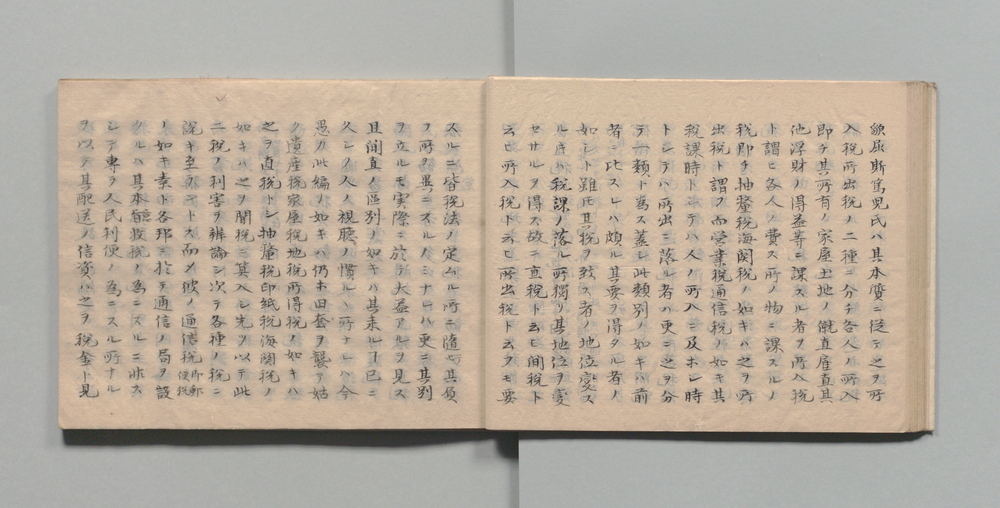 歛屈斯篤児氏ハ其本質ニ従テ之ヲ所
入税所出税ノ二種ニ分チ各人ノ所入
即チ其所有ノ家屋土地ノ僦直産直其
他浮財ノ得益等ニ課スル者ヲ所入税
ト謂ヒ各人ノ費ス所ノ物ニ課スルノ
税即チ抽釐税海関税ノ如キハ之ヲ所
出税ト謂フ而営業税通信税ノ如キ其
税課時トシテハ人ノ所入ニ及ホシ時
トシテハ所出ニ落ル者ハ更ニ之ヲ分
テ一類ト為ス蓋シ此類別ノ如キハ前
者ニ比スレハ頗ル其要ヲ得タル者ノ
如シト雖𪜈其税ヲ致ス者ノ地位変ス
ル片ハ税課ノ落ル所獨リ其地位ヲ変
セサルヲ得ス故ニ直税ト云ヒ間税ト
云ヒ所入税ト云ヒ所出税ト云フモ要
スルニ皆税法ノ定ムル所ニ随テ其質
フ所ヲ異ニスルノミナレハ更ニ其別
ヲ立ルモ実際ニ於テ大益アルヲ見ス
且間直ノ區別ノ如キハ其来ルヿ已ニ
久シク人ノ視聴ノ慣ルヽ所ナレハ今
愚カ此編ノ如キハ仍ホ旧套ヲ襲テ姑
ク遺産税家屋税地税所得税ノ如キハ
之ヲ直税トシ抽釐税印紙税海関税ノ
如キハ之ヲ間税ニ算入シ先ツ以テ此
二税ノ利害ヲ辨論シ次テ各種ノ税ニ
説キ至ラントス而メ彼ノ通信税即郵便税
ノ如キ素ト各邦ニ於テ通信ノ局ヲ設
クルハ其本體收税ノ為ニスルニ非ス
シテ専ラ人民利便ノ為ニスル所ナル
ヲ以テ其配送ノ信資ハ之ヲ税金ト見